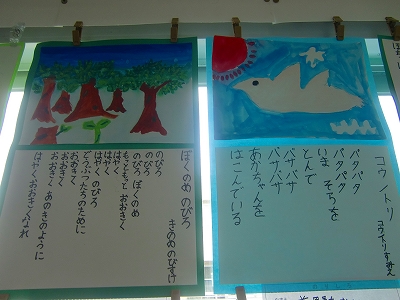 コウノトリ
コウノトリすみえ
バタバタ
バタバタ
いま そらを
とんで
バサバサ
バサバサ
あかちゃんを
はこんでいる
ぼくのめ のびろ
きのめのびすけ
のびろ
のびろ
のびろ ぼくのめ
もっともっと おおきく
はやく
はやく のびろ
どうぶつたちのために
おおきく
おおきく
はやく あのきのように
はやくおおきくなれ